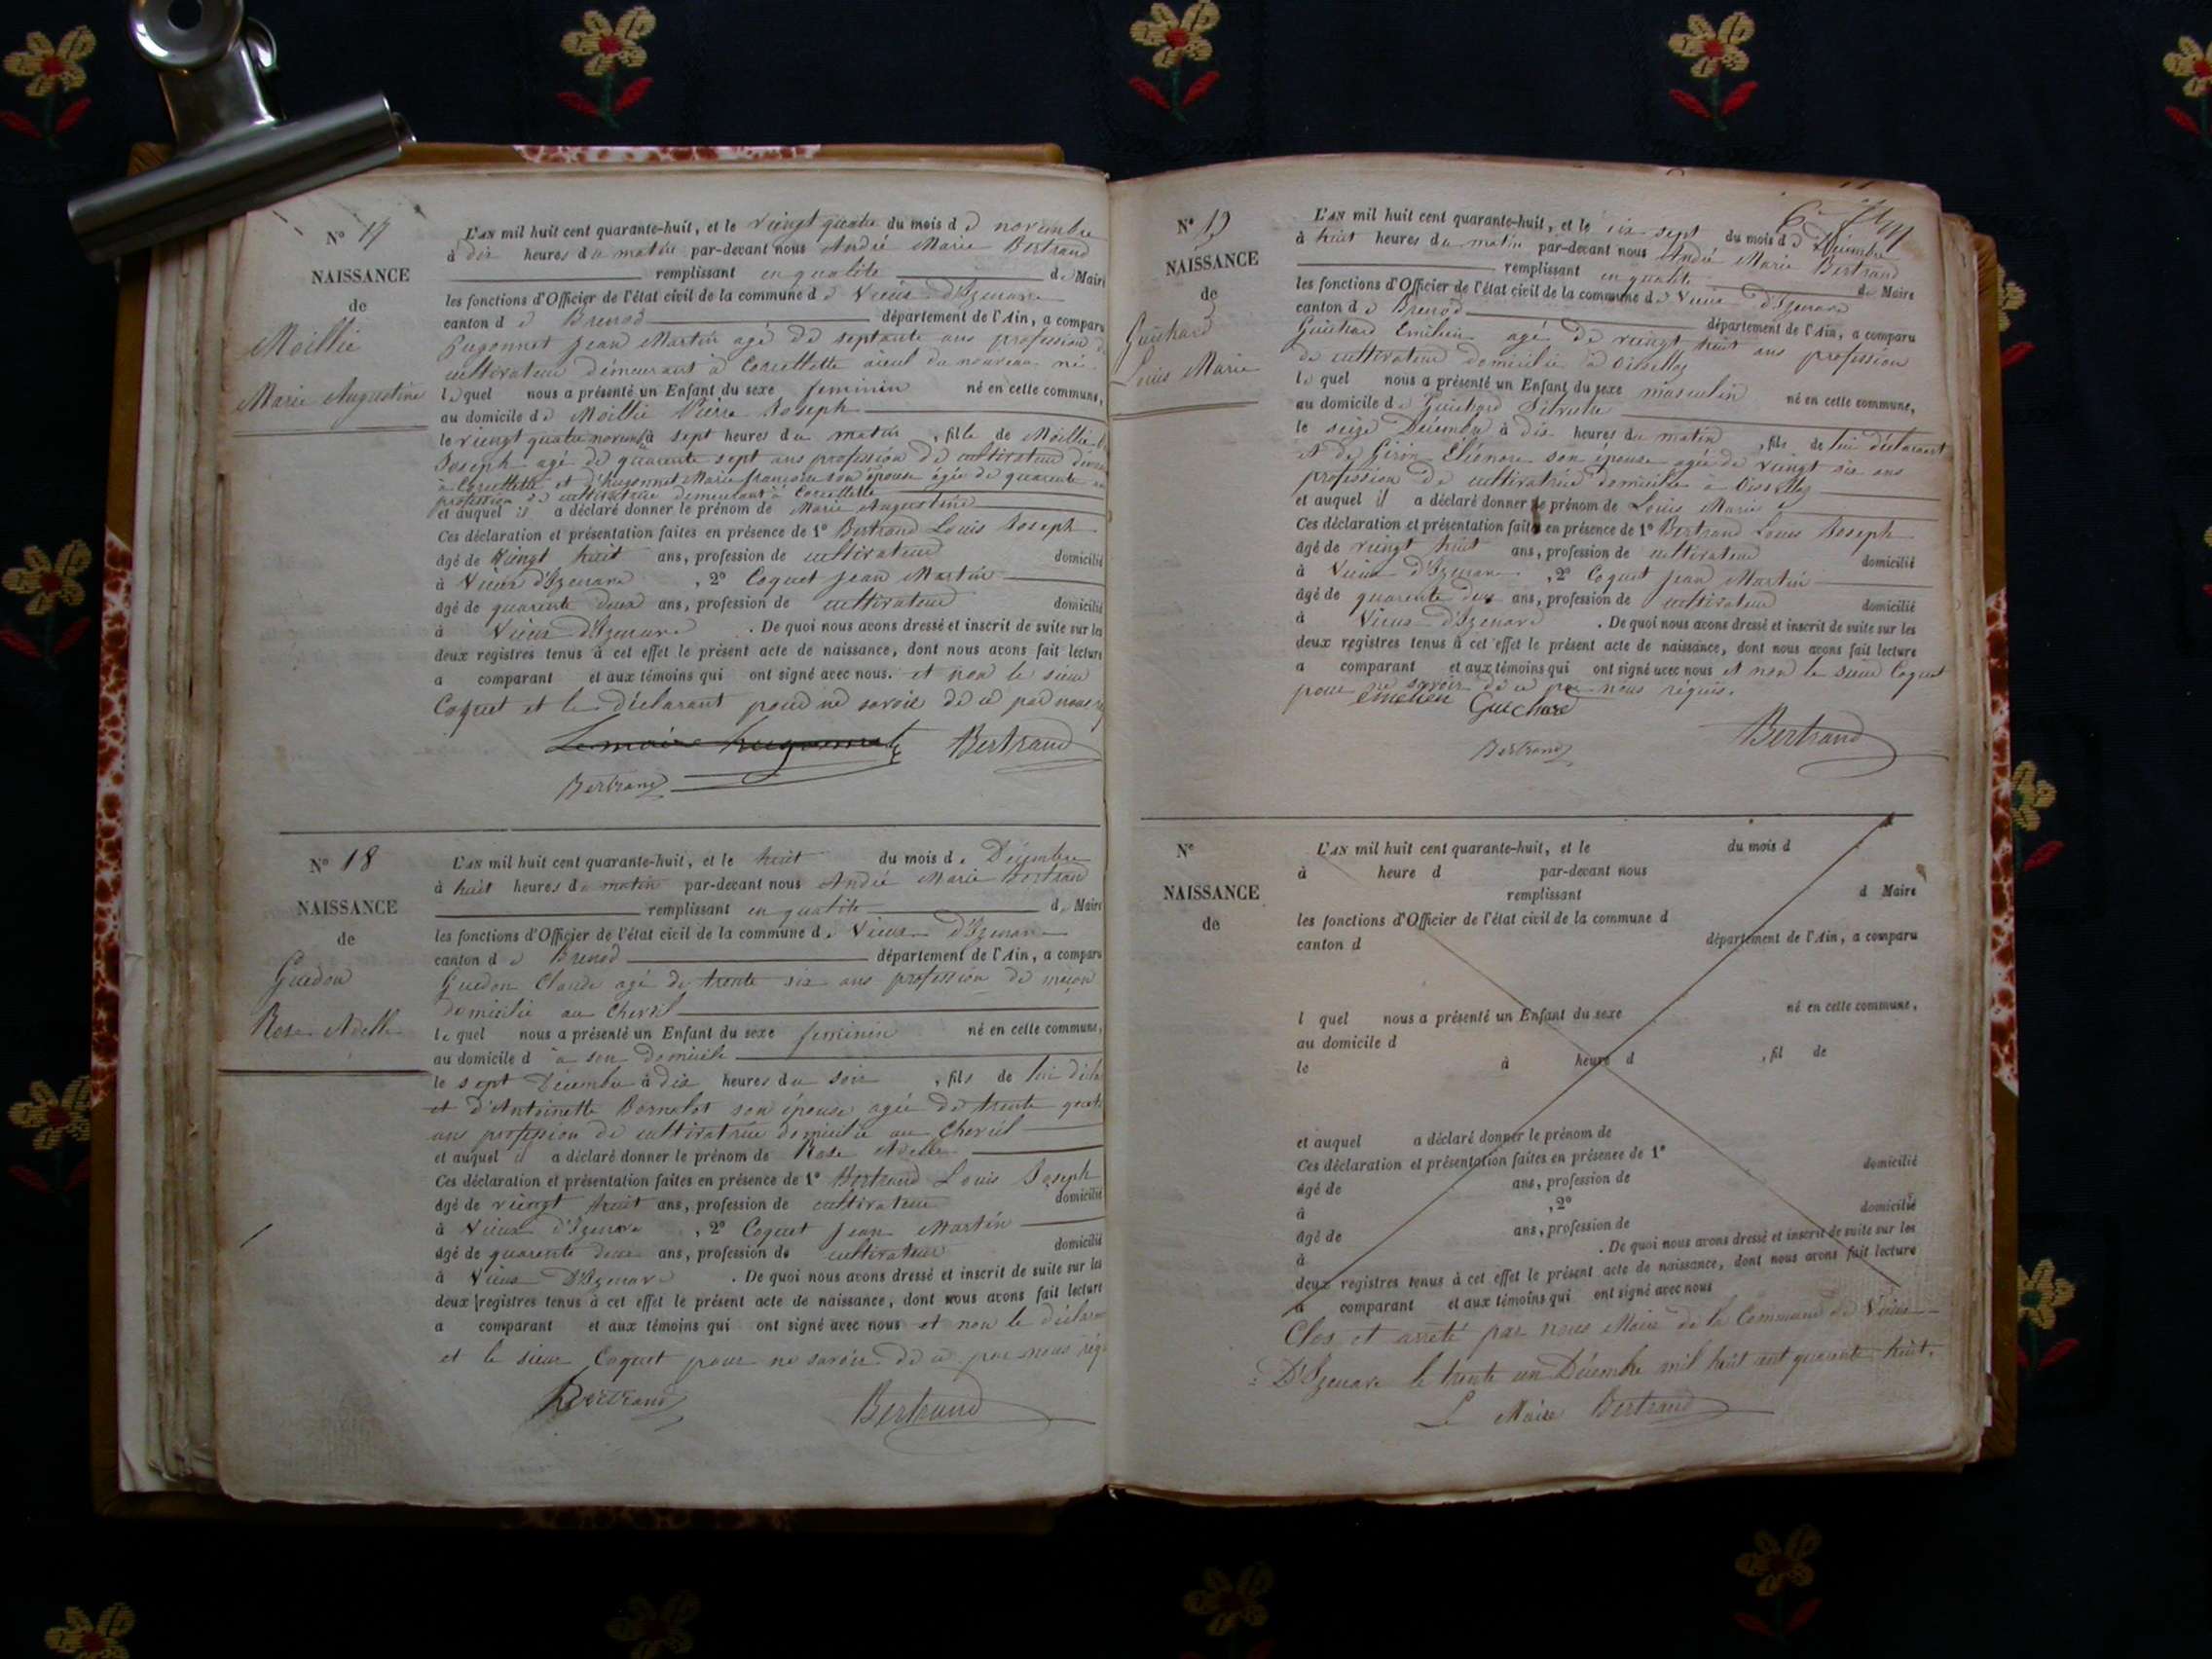 N° 17
NAISSANCE
de
Moillie
Marie Augustine
L'AN mil huit cent quarante-huit, et le vingt quatre du mois de novembre
à dix heures du matin par-devant nous André Marie Bertrand
remplissant en qualité de Maire
les fonctions d'Officier de l'état civil de la commune de Vieux d'Izenave
canton de Brenod département de l'Ain, a comparu
Jean Martin agé de septante ans profession de
cultivateur demeurant à Corcellette aieul du nouveau né
lequel nous a présenté un Enfant du sexe feminin né en cette commune,
au domicile de Moillie Pierre Joseph
le vingt quatre novembre à sept heures du matin, fille de Moillie
Joseph agé de quarente sept ans profession de cultivateur
à Corcellette et d'hugonnet Marie françoise son épouse agée de quarente
profession de cultivatrice demeurant à Corcellette
et auquel il a déclaré donner le prénom de Marie Augustine
Ces déclaration et présentation faites en présence de 1° Bertrand Louis Joseph
âgé de vingt huit ans, profession de cultivateur domicilié
à Vieux d'Izenave, 2° Coquet Jean Martin
âgé de quarente deux ans, profession de cultivateur domicilié
à Vieux d'Izenave. De quoi nous avons dressé et inscrit de suite sur les
deux registres tenus à cet effet le présent acte de naissance, dont nous avons fait lecture
a comparant et aux témoins qui ont signé avec nous. et non le sieur
Coquet et le déclarant pour ne savoir de ce par nous
Bertrand
Bertrand
N° 18
NAISSANCE
de
Guedon
Rose Adelle
L'AN mil huit cent quarante-huit, et le huit du mois de Décembre
à huit heures du matin par-devant nous André Marie Bertrand
remplissant en qualité de Maire
les fonctions d'Officier de l'état civil de la commune de Vieux d'Izenave
canton de Brenod département de l'Ain, a comparu
Guedon Claude agé de trente six ans profession de maçon
domicilié au Chevril
lequel nous a présenté un Enfant du sexe feminin né en cette commune,
au domicile d à son domicile
le sept Décembre à dix heures du soir, fils de lui
et d'Antoinette Bornalot son épouse agée de trente
ans profession de cultivatrice domiciliée au Chevril
et auquel il a déclaré donner le prénom de Rose Adelle
Ces déclaration et présentation faites en présence de 1° Bertrand Louis Joseph
âgé de vingt huit ans, profession de cultivateur domicilié
à Vieux d'Izenave, 2° Coquet Jean Martin
âgé de quarente deux ans, profession de cultivateur domicilié
à Vieux D'Izenave. De quoi nous avons dressé et inscrit de suite sur les
deux registres tenus à cet effet le présent acte de naissance, dont nous avons fait lecture
a comparant et aux témoins qui ont signé avec nous et non le
et le sieur Coquet pour ne savoir de ce par nous
Bertrand Bertrand
N° 19
NAISSANCE
de
Guichard
Louis Marie
L'AN mil huit cent quarante-huit, et le dix sept du mois de Décembre
à huit heures du matin par-devant nous André Marie Bertrand
remplissant en qualité de Maire
les fonctions d'Officier de l'état civil de la commune de Vieux d'Izenave
canton de Brenod département de l'Ain, a comparu
Guichard Emilien agé de vingt huit ans profession
de cultivateur domicilié à Oisellaz
lequel nous a présenté un Enfant du sexe masculin né en cette commune,
au domicile de Guichard Silvestre
le seize Décembre à dix heures du matin, fils de lui déclarant
et de Giron Éléonore son épouse agée de vingt six ans
profession de cultivatrice domiciliée à Oisellaz
et auquel il a déclaré donner le prénom de Louis Marie
Ces déclaration et présentation faites en présence de 1° Bertrand Louis Joseph
âgé de vingt huit ans, profession de cultivateur domicilié
à Vieux d'Izenave, 2° Coquet Jean Martin
âgé de quarente deux ans, profession de cultivateur domicilié
à Vieux d'Izenave. De quoi nous avons dressé et inscrit de suite sur les
deux registres tenus à cet effet le présent acte de naissance, dont nous avons fait lecture
a comparant et aux témoins qui ont signé avec nous et non le sieur Coquet
pour ne savoir de ce par nous réquis.
emelien Guichard
Bertrand Bertrand
N°
NAISSANCE
de
L'AN mil huit cent quarante-huit, et le du mois d
à heure d par-devant nous
remplissant d Maire
les fonctions d'Officier de l'état civil de la commune d
canton d département de l'Ain, a comparu
l quel nous a présenté un Enfant du sexe né en cette commune,
au domicile d
le à heure d, fil de
et auquel a déclaré donner le prénom de
Ces déclaration et présentation faites en présence de 1°
âgé de ans, profession de domicilié
à, 2°
âgé de ans, profession de domicilié
à. De quoi nous avons dressé et inscrit de suite sur les
deux registres tenus à cet effet le présent acte de naissance, dont nous avons fait lecture
a comparant et aux témoins qui ont signé avec nous
Clos et arrêté par nous Maire de la Commune de Vieux
D'Izenave le trente un Décembre mil huit cent quarante huit.
Le Maire Bertrand